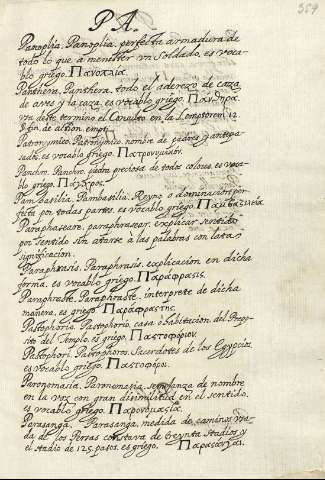 PA.
359
Panoplia, Panoplia, perfecta armadura de
todo lo que à menester vn soldado, es voca-
blo griego. Πανοπλία.
Panthere, Panthera, todo el aderezo de caza
de aves y la caza, es vocablo griego. Πανθηρα.
va deste termino el Consulto en la l. emptorem 12
ff. de action. empti
Patronymico, Patronymico, nombre de padres y antepa-
sados, es vocablo griego. Πατρονυμικόν.
Panchro, Panchro, piedra preciosa de todos colores es voca-
blo griego. Πάγχρος.
Pambasilia, Pambasilia, Reyno o dominacion per-
fecta por todas partes, es vocablo griego. Παμβασιλεία.
Paraphasear, paraphrasear, explicar sentido
por sentido sin atarse a las palabras con lata
significacion.
Paraphrasis, Paraphrasis, explicacion en dicha
forma, es vocablo griego. Παράφρασις.
Paraphraste, Paraphraste, interprete de dicha
manera, es griego Παράφραστης.
Pastophorio, Pastophorio, casa o habitacion del
sito del Templo, es griego. Παστοφόριον.
Pastophori, Pastophoros, Sacerdotes de los Egypcios,
es vocablo griego. Παστοφόροι.
Paronomasia, Paronomasia, semejanza de nombre
en la voz con gran disimilitud en el sentido,
es vocablo griego. Παρονομασία.
Parasanga, Parasanga, medida de caminos vsa-
da de los Persas constava de treynta stadios, y
el stadio de 125. pasos. es griego. Παρασάγγαι.